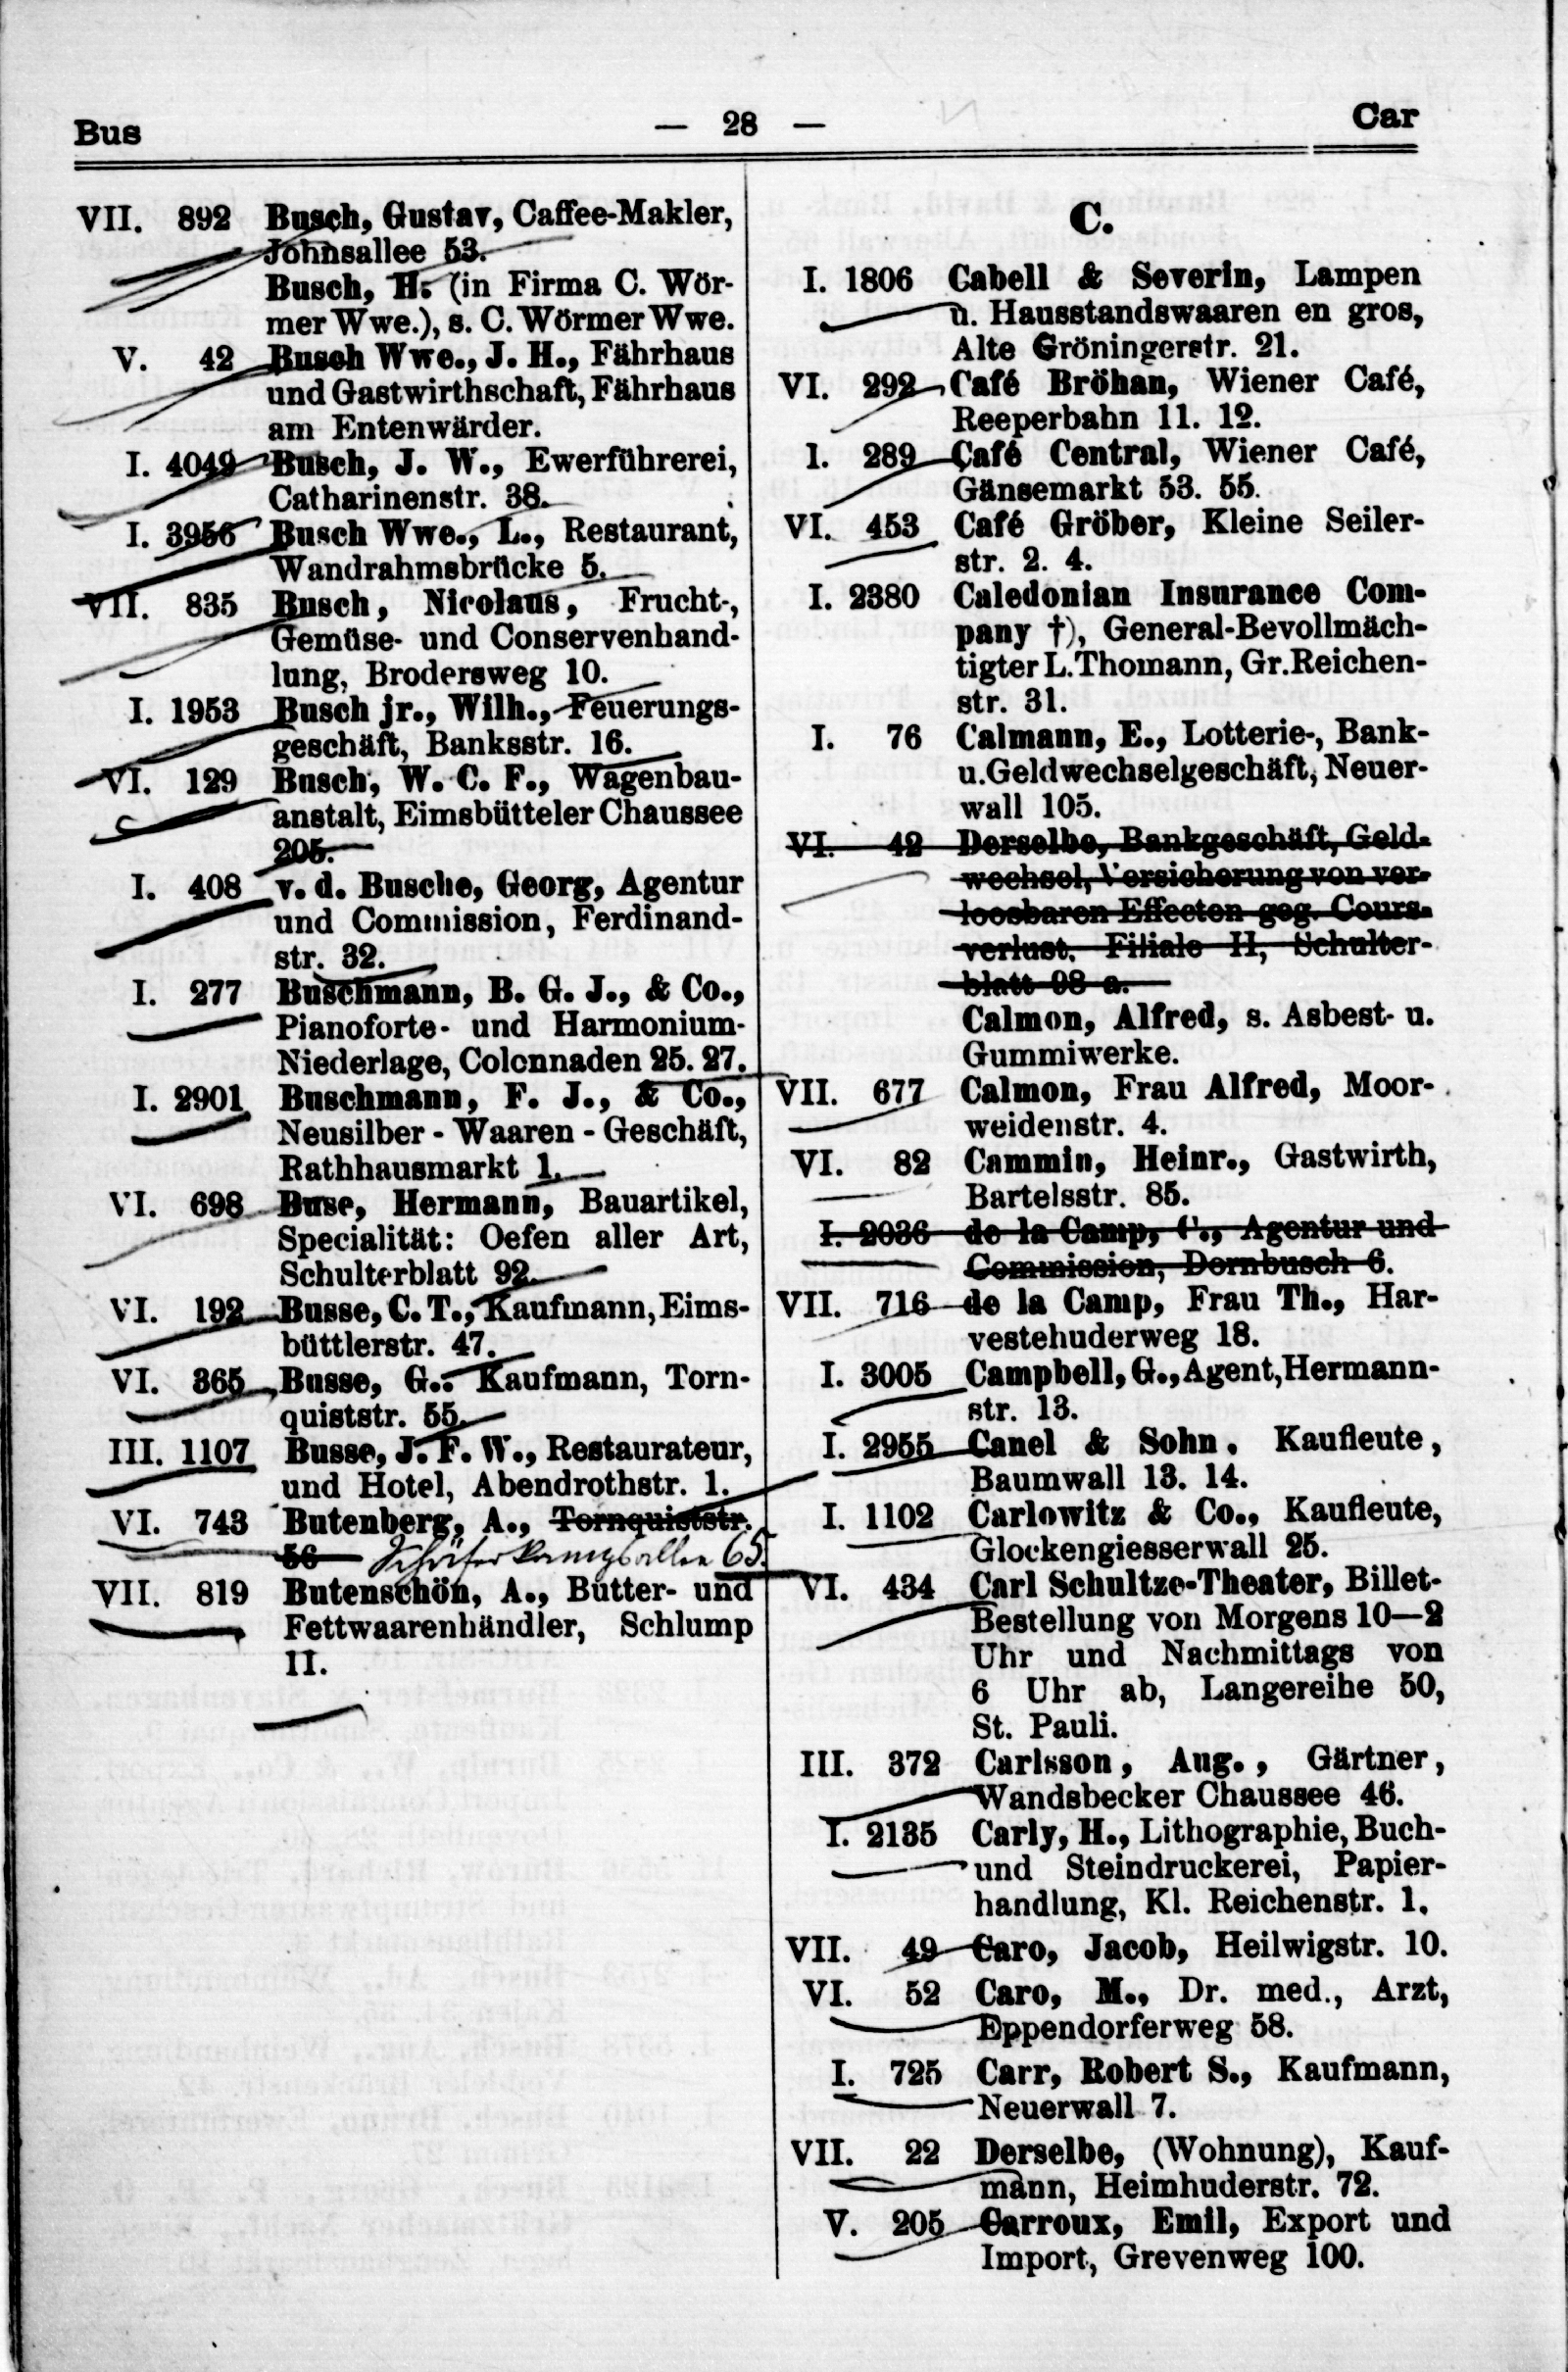 Bus
— 28 —
Car
VII. 892 Busch, Gustav, Caffee-Makler,
Johnsallee 53.
Busch, H. (in Firma C. Wör-
mer Wwe.), s. C. Wörmer Wwe.
V. 42 Busch Wwe., J. H., Fährhaus
und Gastwirthschaft, Fährhaus
am Entenwärder.
I. 4049 Busch, J. W., Ewerführerei,
Catharinenstr. 38.
I. 3956 Busch Wwe., L., Restaurant,
Wandrahmsbrücke 5.
VII. 835 Busch, Nicolaus, Frucht-,
Gemüse- und Conservenhand-
lung, Brodersweg 10.
I. 1953 Busch jr., Wilh., Feuerungs-
geschäft, Banksstr. 16.
VI. 129 Busch, W. C. F., Wagenbau-
anstalt, Eimsbütteler Chaussee
205.
I. 408 v. d. Busche, Georg, Agentur
und Commission, Ferdinand-
str. 32.
I. 277 Buschmann, B. G. J., & Co.,
Pianoforte- und Harmonium-
Niederlage, Colonnaden 25. 27.
I. 2901 Buschmann, F. J., & Co.,
Neusilber - Waaren - Geschäft,
Rathhausmarkt 1.
VI. 698 Buse, Hermann, Bauartikel,
Specialität: Oefen aller Art,
Schulterblatt 92.
VI. 192 Busse, C. T., Kaufmann, Eims-
büttlerstr. 47.
VI. 365 Busse, G., Kaufmann, Torn-
quiststr. 55.
III. 1107 Busse, J. F. W., Restaurateur,
und Hotel, Abendrothstr. 1.
VI. 743 Butenberg, A., Tornquiststr.
56 Schäferkampsallee 65.
VII. 819 Butenschön, A., Butter- und
Fettwaarenhändler, Schlump
11.
C.
I. 1806 Cabell & Severin, Lampen
u. Hausstandswaaren en gros,
Alte Gröningerstr. 21.
VI. 292 Café Bröhan, Wiener Café,
Reeperbahn 11. 12.
I. 289 Café Central, Wiener Café,
Gänsemarkt 53. 55.
VI. 453 Café Gröber, Kleine Seiler-
str. 2. 4.
I. 2380 Caledonian Insurance Com-
pany †), General-Bevollmäch-
tigter L. Thomann, Gr. Reichen-
str. 31.
I. 76 Calmann, E., Lotterie-, Bank-
u. Geldwechselgeschäft, Neuer-
wall 105.
VI. 42 Derselbe, Bankgeschäft, Geld-
wechsel, Versicherung von ver-
loosbaren Effecten geg. Cours-
verlust. Filiale II, Schulter-
blatt 98 a.
Calmon, Alfred, s. Asbest- u.
Gummiwerke.
VII. 677 Calmon, Frau Alfred, Moor-
weidenstr. 4.
VI. 82 Cammin, Heinr., Gastwirth,
Bartelsstr. 85.
I. 2036 de la Camp, C., Agentur und
Commission, Dornbusch 6.
VII. 716 de la Camp, Frau Th., Har-
vestehuderweg 18.
I. 3005 Campbell, G., Agent, Hermann-
str. 13.
I. 2955 Canel & Sohn, Kaufleute,
Baumwall 13. 14.
I. 1102 Carlowitz & Co., Kaufleute,
Glockengiesserwall 25.
VI. 434 Carl Schultze-Theater, Billet-
Bestellung von Morgens 10—2
Uhr und Nachmittags von
6 Uhr ab, Langereihe 50,
St. Pauli.
III. 372 Carlsson, Aug., Gärtner,
Wandsbecker Chaussee 46.
I. 2135 Carly, H., Lithographie, Buch-
und Steindruckerei, Papier-
handlung, Kl. Reichenstr. 1.
VII. 49 Caro, Jacob, Heilwigstr. 10.
VI. 52 Caro, M., Dr. med., Arzt,
Eppendorferweg 58.
I. 725 Carr, Robert S., Kaufmann,
Neuerwall 7.
VII. 22 Derselbe, (Wohnung), Kauf-
mann, Heimhuderstr. 72.
V. 205 Carroux, Emil, Export und
Import, Grevenweg 100.